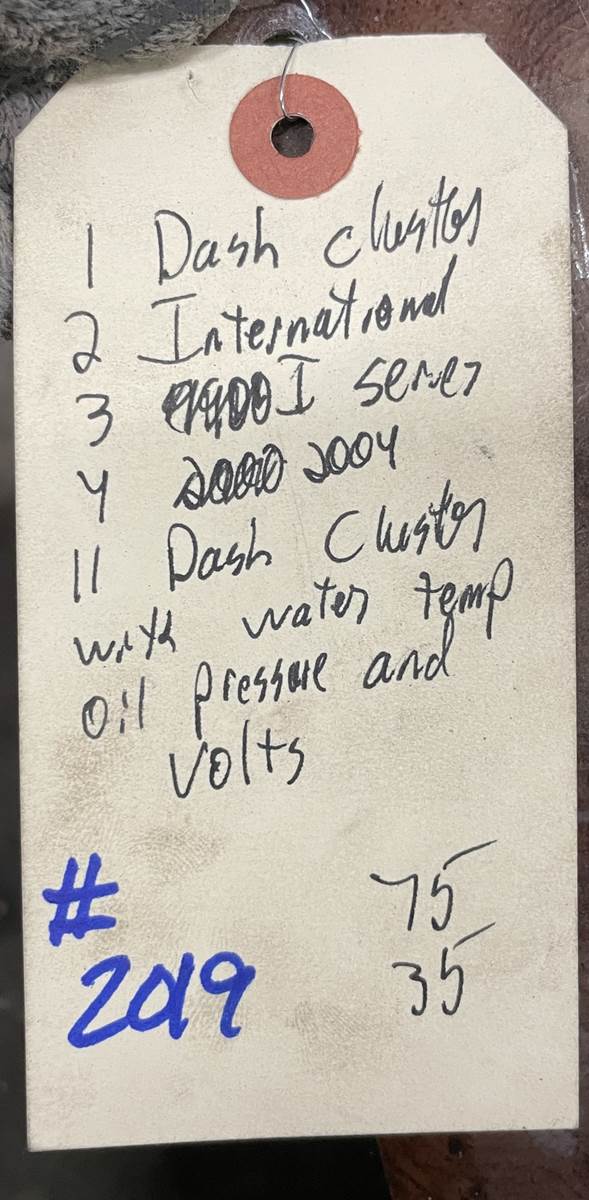 1 Dash cluster
2 International
3 9900I series
4 2004
11 Dash Cluster
with water temp
oil pressure and
volts
75
35
#
2019